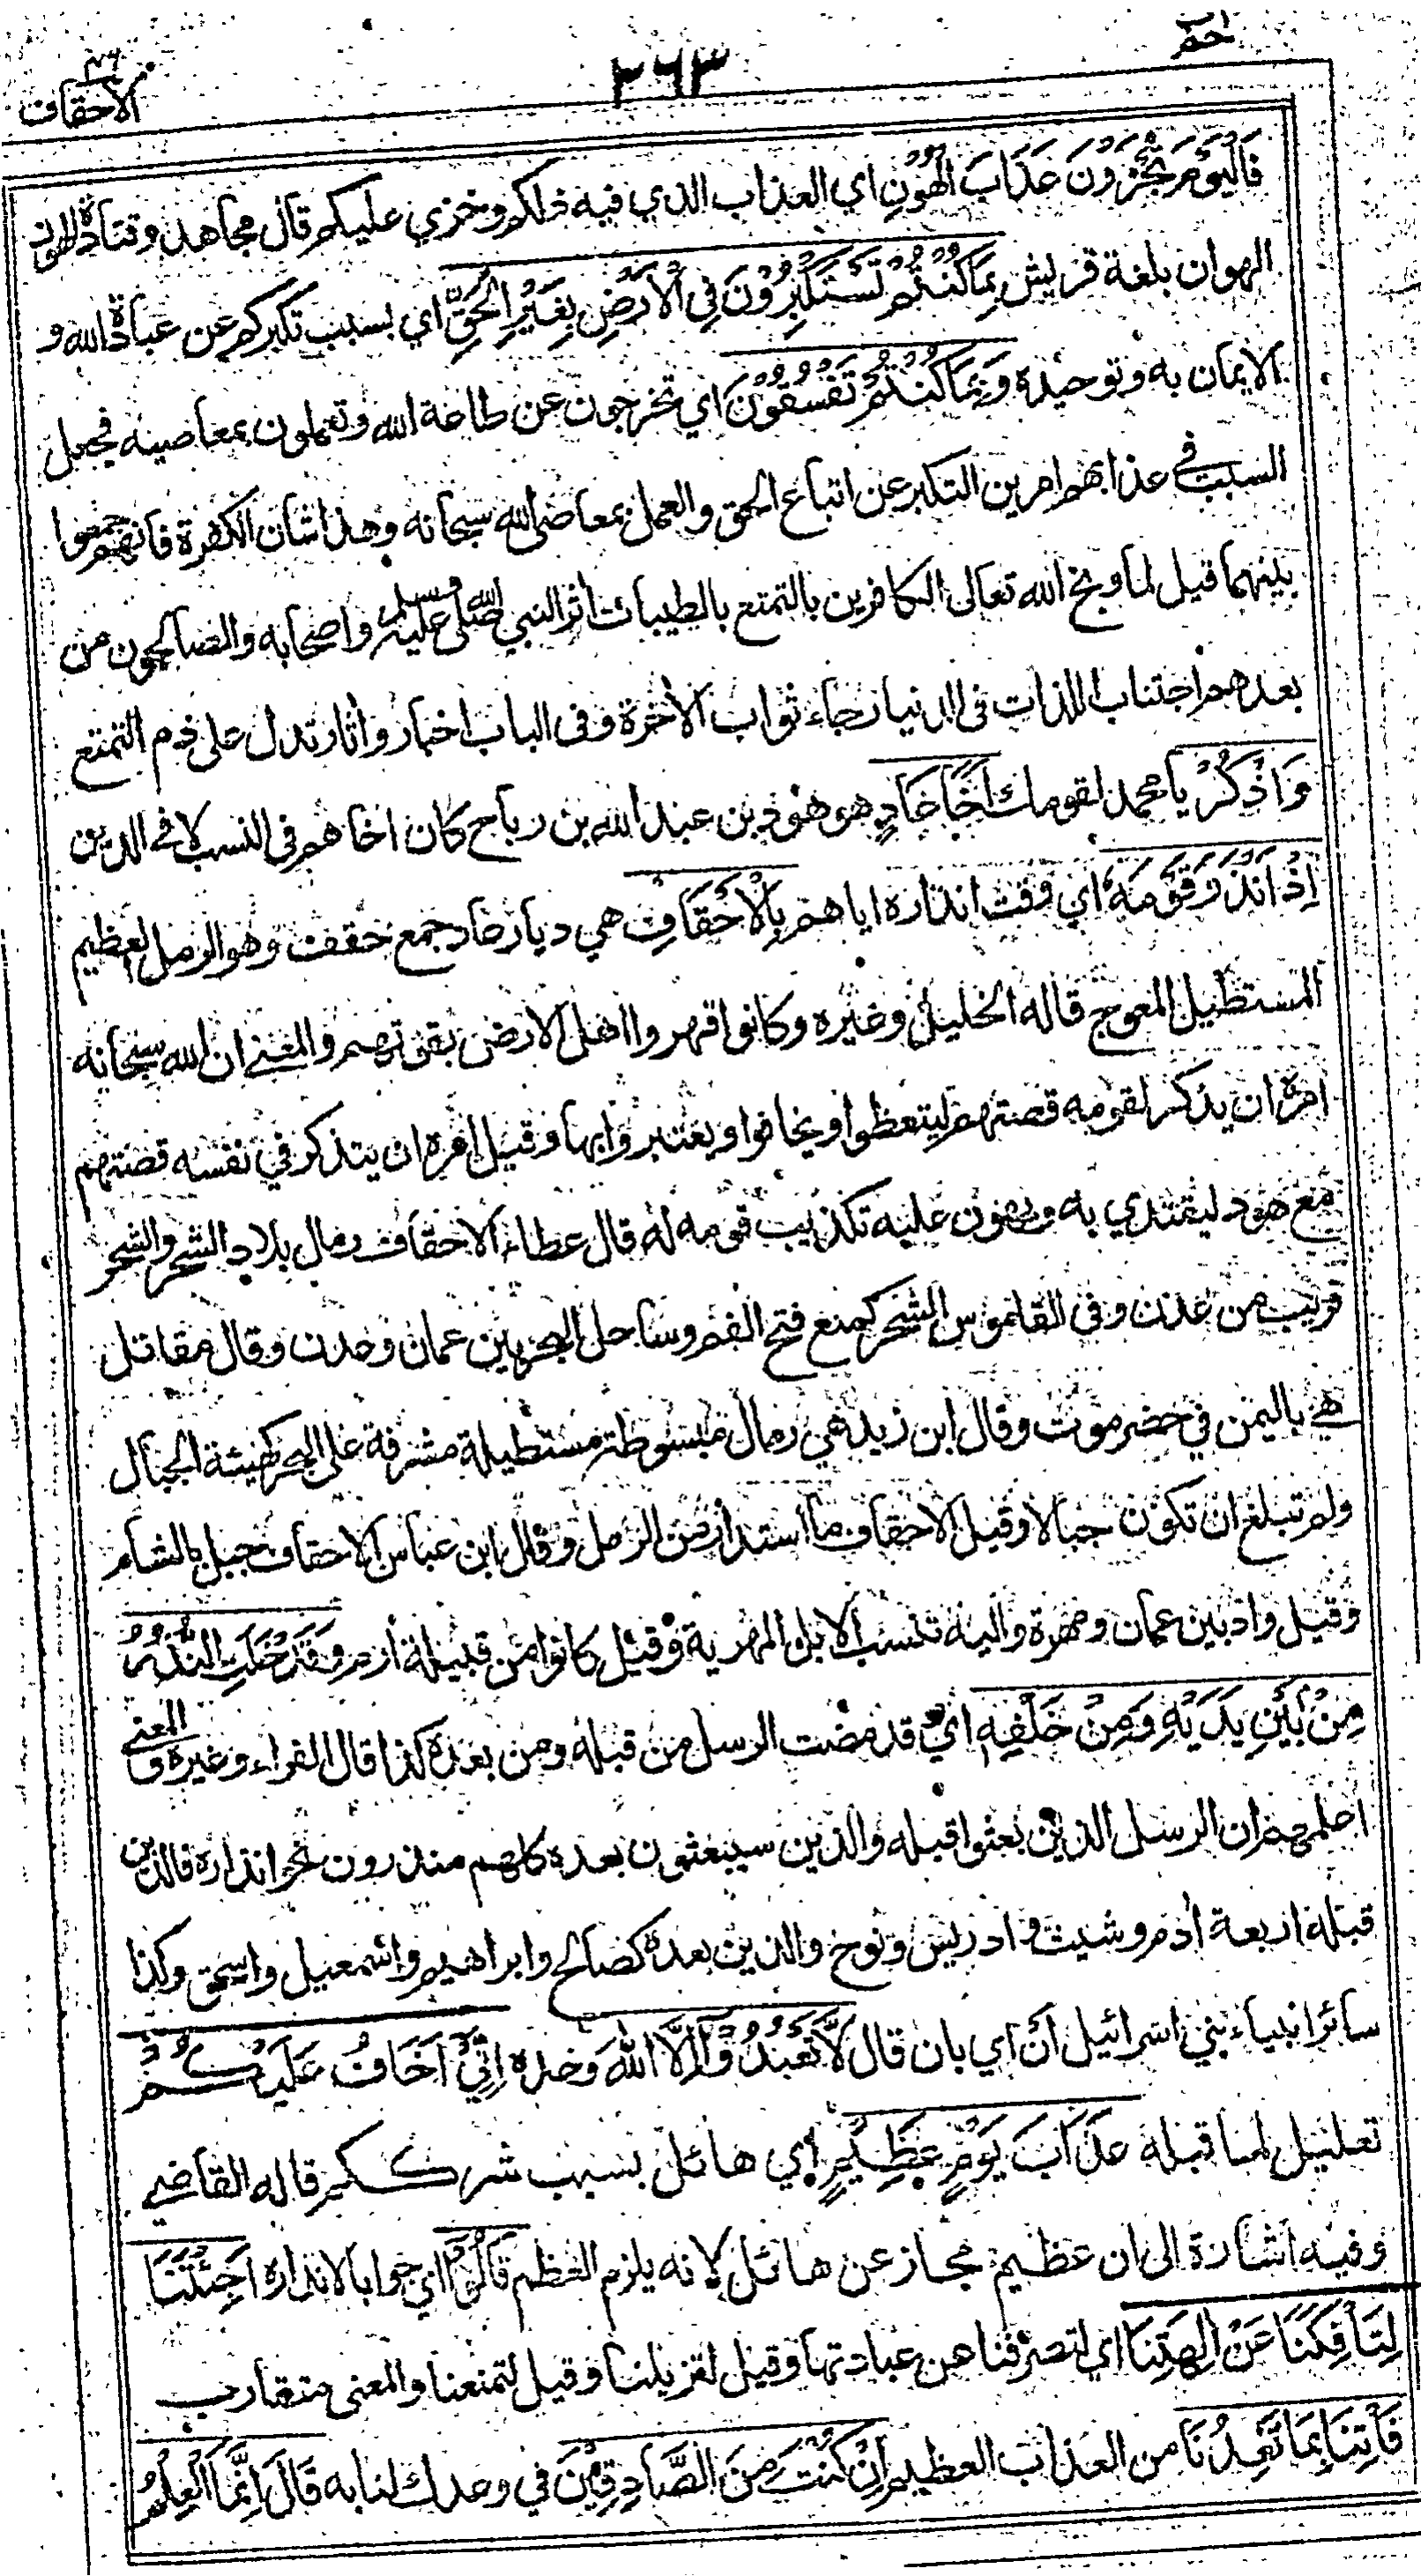 حم
٢٦٣
الاحقاف
٤٦
فَالْيَوْمَ تُجْزَوْنَ عَذَابَ الْهُوْنِ اي العذاب الذي فيه ذلكم وخزي عليكم قال مجاهد وقتادة الهون
الهوان بلغة قريش بِمَا كُنْتُمْ تَسْتَكْبِرُوْنَ فِي الْاَرْضِ بِغَيْرِ الْحَقِّ اي بسبب تكبركم عن عبادة الله و
الايمان به وتوحيده وَبِمَا كُنْتُمْ تَفْسُقُوْنَ اي تخرجون عن طاعة الله وتعملون بمعاصيه فجعل
السبب في عذابهم امرين التكبر عن اتباع الحق والعمل بمعاصي الله سبحانه وهذا شان الكفرة فانهم جمعوا
بينهما قيل لما وبخ الله تعالى الكافرين بالتمتع بالطيبات اثر النبي صلى الله عليه وسلم واصحابه والصالحون من
بعدهم اجتناب اللذات في الدنيا رجاء ثواب الأخرة وفي الباب اخبار وأثار تدل على ذم التمتع
وَاذْكُرْ يا محمد لقومك اَخَا عَادٍ هو هود بن عبد الله بن رباح كان اخاهم في النسب لا في الدين
اِذْ اَنْذَرَ قَوْمَهٗ اي وقت انذاره اياهم بِالْاَحْقَافِ هي ديار عاد جمع حقف وهو الرمل العظيم
المستطيل المعوج قاله الخليل وغيره وكانوا قهروا اهل الارض بقوتهم والمعنى ان الله سبحانه
امره ان يذكر لقومه قصتهم ليتعظوا ويخافوا ويعتبروا بها وقيل امره ان يتذكر في نفسه قصتهم
مع هود ليقتدي به ويهون عليه تكذيب قومه له قال عطاء الاحقاف رمال بلاد الشحر والشحر
قريب من عدن وفي القاموس الشحر كمنع فتح الفم وساحل البحر بين عمان وعدن وقال مقاتل
هي باليمن في حضرموت وقال ابن زيد هي رمال مبسوطة مستطيلة مشرفة على البحر كهيئة الجبال
ولم تبلغ ان تكون جبالا وقيل الاحقاف ما استدار من الرمل وقال ابن عباس الاحقاف جبل بالشام
وقيل واد بين عمان ومهرة واليه تنسب الابل المهرية وقيل كانوا من قبيلة ارم وَقَدْ خَلَتِ النُّذُرُ
مِنْ بَيْنِ يَدَيْهِ وَمِنْ خَلْفِهٖ اي قد مضت الرسل من قبله ومن بعده كذا قال الفراء وغيره والمعنى
اعلمهم ان الرسل الذين بعثوا قبله والذين سيبعثون بعده كلهم منذرون نحو انذاره فالذين
قبله اربعة أدم وشيث وادريس ونوح والذين بعده كصالح وابراهيم واسمعيل واسحق وكذا
سائر انبياء بني اسرائيل اَنْ اي بان قال لَّا تَعْبُدُوْٓا اِلَّا اللّٰهَ وحده اِنِّيْٓ اَخَافُ عَلَيْكُمْ
تعليل لما قبله عَذَابَ يَوْمٍ عَظِيْمٍ اي هائل بسبب شرككم قاله القاضي
وفيه اشارة الى ان عظيم مجاز عن هائل لانه يلزم العظم قَالُوْٓا اي جوابا لانذاره اَجِئْتَنَا
لِتَاْفِكَنَا عَنْ اٰلِهَتِنَا اي لتصرفنا عن عبادتها وقيل لتزيلنا وقيل لتمنعنا والمعنى متقارب
فَاْتِنَا بِمَا تَعِدُنَا من العذاب العظيم اِنْ كُنْتَ مِنَ الصَّادِقِيْنَ في وعدك لنا به قَالَ اِنَّمَا الْعِلْمُ